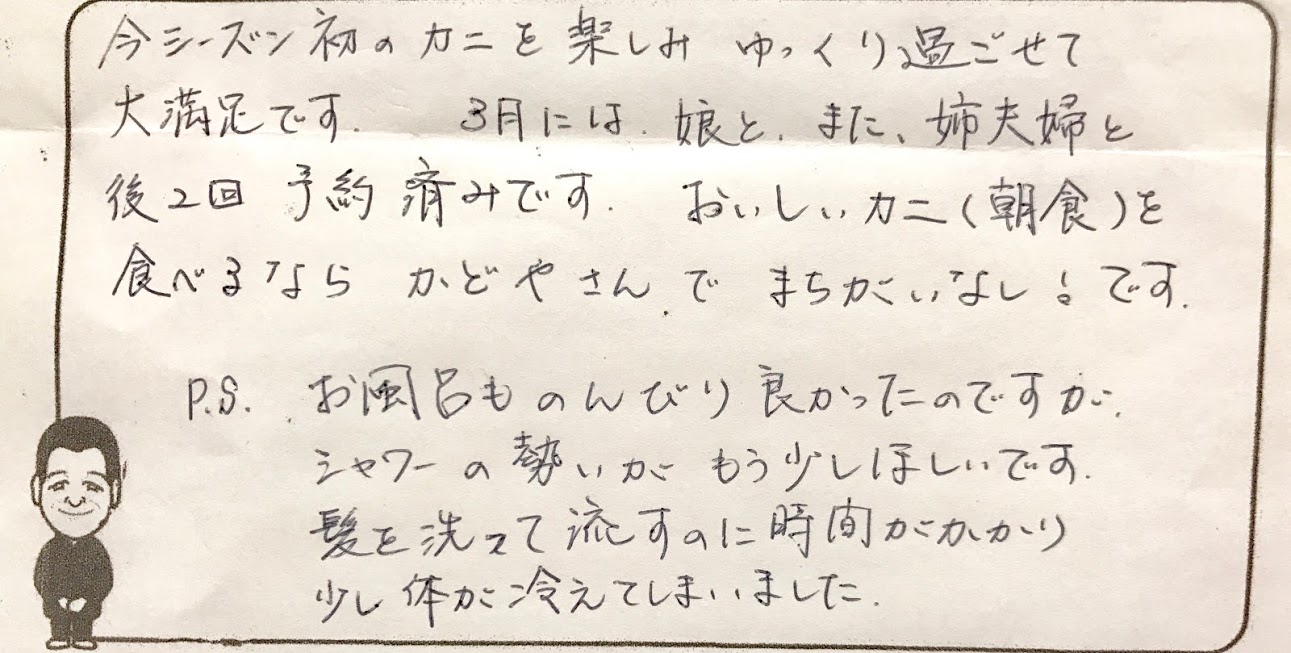 今シーズン初のカニを楽しみ ゆっくり過ごせて
大満足です. 3月には. 娘と. また、姉夫婦と
後2回 予約済みです. おいしいカニ(朝食)を
食べるなら かどやさん. で まちがいなし!です.
P.S. お風呂ものんびり良かったのですが.
シャワーの勢いが もう少しほしいです.
髪を洗って流すのに時間がかかり
少し体が冷えてしまいました.